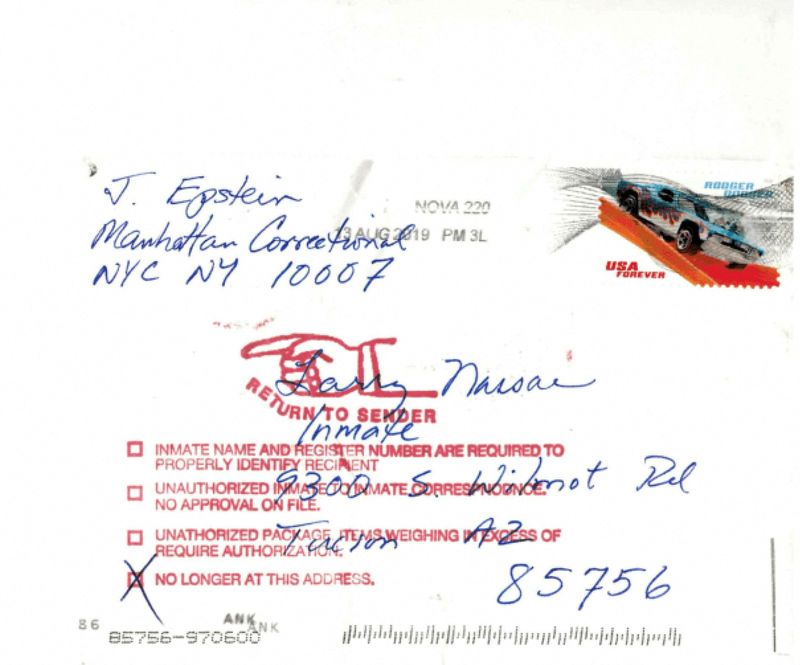 J. Epstein
Manhattan Correctional
NYC NY 10007
NOVA 220
13 AUG 2019 PM 3L
RODGER DODGER
USA
FOREVER
Larry Nassar
RETURN TO SENDER
Inmate
INMATE NAME AND REGISTER NUMBER ARE REQUIRED TO
PROPERLY IDENTIFY RECIPIENT
9300 S. Wilmot Rd
UNAUTHORIZED INMATE TO INMATE CORRESPONDENCE.
NO APPROVAL ON FILE.
Tucson AZ
UNAUTHORIZED PACKAGE, ITEMS WEIGHING IN EXCESS OF
REQUIRE AUTHORIZATION.
X NO LONGER AT THIS ADDRESS.
85756
86
ANK
ANK
85756-970600